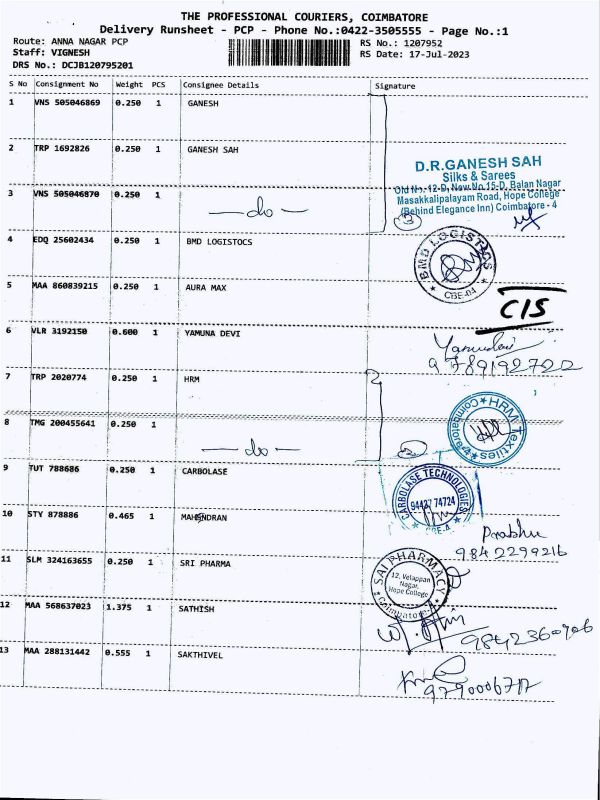 THE PROFESSIONAL COURIERS, COIMBATORE
Delivery Runsheet - PCP - Phone No.:0422-3505555 - Page No.:1
Route: ANNA NAGAR PCP
RS No.: 1207952
Staff: VIGNESH
RS Date: 17-Jul-2023
DRS No.: DCJB120795201
S No Consignment No Weight PCS Consignee Details Signature
1 VNS 505046869 0.250 1 GANESH
2 TRP 1692826 0.250 1 GANESH SAH
D.R.GANESH SAH
Silks & Sarees
Old No.-12-D, New No.15-D, Balan Nagar
Masakkalipalayam Road, Hope College
(Behind Elegance Inn) Coimbatore - 4
3 VNS 505046870 0.250 1 — do — 3
4 EDQ 25602434 0.250 1 BMD LOGISTOCS
BMD LOGISTICS
CBE-04
5 MAA 860839215 0.250 1 AURA MAX
CIS
6 VLR 3192150 0.600 1 YAMUNA DEVI
9789192722
7 TRP 2020774 0.250 1 HRM
HRM Textiles
Coimbatore-4
8 TMG 200455641 0.250 1 — do — 2
9 TUT 788686 0.250 1 CARBOLASE
CARBOLASE TECHNOLOGIES
94427 74724
CBE-4
10 STY 878886 0.465 1 MAHENDRAN
Prabhu
9842299216
11 SLM 324163655 0.250 1 SRI PHARMA
SAI PHARMACY
12, Velappan
Nagar,
Hope College
Coimbatore-4
12 MAA 568637023 1.375 1 SATHISH
13 MAA 288131442 0.555 1 SAKTHIVEL